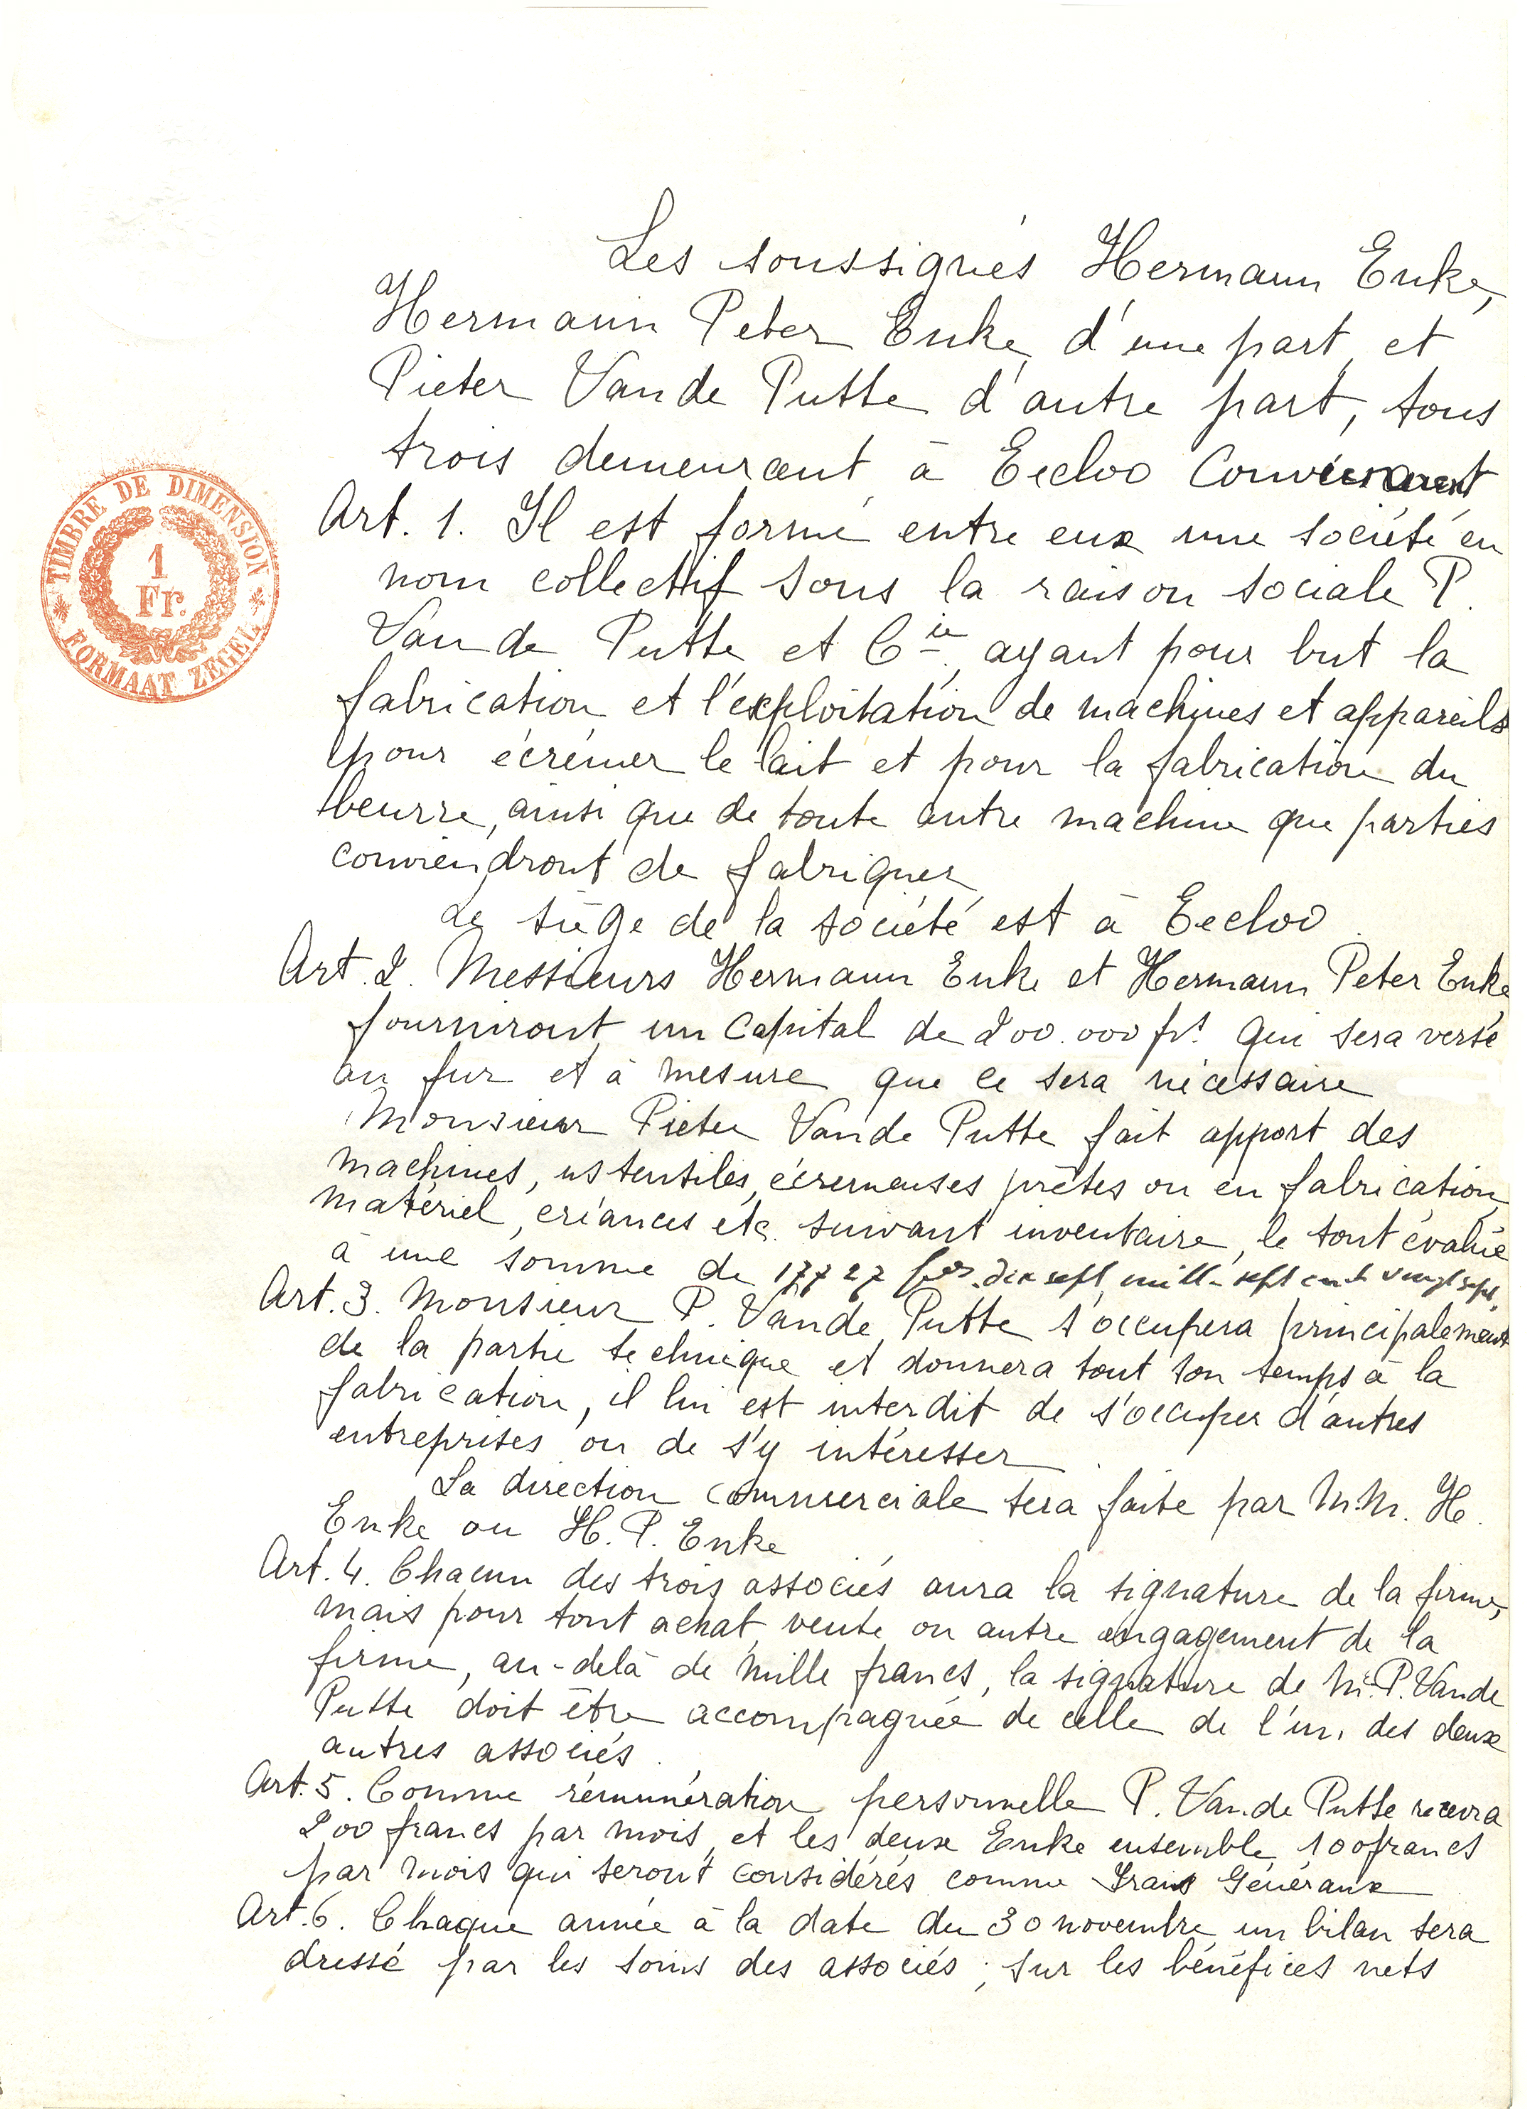 Les soussignés Hermann Enke,
Hermann Peter Enke, d'une part, et
Pieter Van de Putte d'autre part, tous
trois demeurant à Eecloo Conviennent
Art. 1. Il est formé entre eux une société en
nom collectif sous la raison sociale P.
Van de Putte et Cie, ayant pour but la
fabrication et l'exploitation de machines et appareils
pour écrémer le lait et pour la fabrication du
beurre, ainsi que de toute autre machine que parties
conviendront de fabriquer
Le siège de la société est à Eecloo.
Art. 2. Messieurs Hermann Enke et Hermann Peter Enke
fourniront un Capital de 200.000 frs. qui sera versé
au fur et à mesure que ce sera nécessaire
Monsieur Pieter Van de Putte fait apport des
machines, ustensiles, écremeuses prêtes ou en fabrication,
matériel, créances etc. suivant inventaire, le tout évalué
à une somme de 17727 frs. dix sept mille sept cent vingt sept.
Art. 3. Monsieur P. Van de Putte s'occupera principalement
de la partie technique et donnera tout son temps à la
fabrication, il lui est interdit de s'occuper d'autres
entreprises ou de s'y intéresser.
La direction commerciale sera faite par M.M. H.
Enke ou H. P. Enke
Art. 4. Chacun des trois associés aura la signature de la firme,
mais pour tout achat, vente ou autre engagement de la
firme, au-delà de mille francs, la signature de Mr. P. Van de
Putte doit être accompagnée de celle de l'un, des deux
autres associés.
Art. 5. Comme rémunération personnelle P. Van de Putte recevra
200 francs par mois, et les deux Enke ensemble 100 francs
par mois qui seront considérés comme Frais Généraux
Art. 6. Chaque année à la date du 30 novembre, un bilan sera
dressé par les soins des associés; sur les bénéfices nets
TIMBRE DE DIMENSION
1
Fr.
FORMAAT ZEGEL